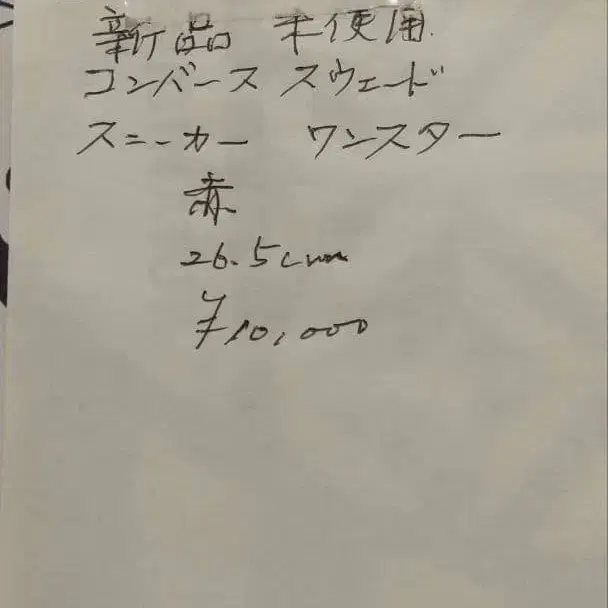 新品 未使用
コンバース スウェード
スニーカー ワンスター
赤
26.5cm
¥10,000